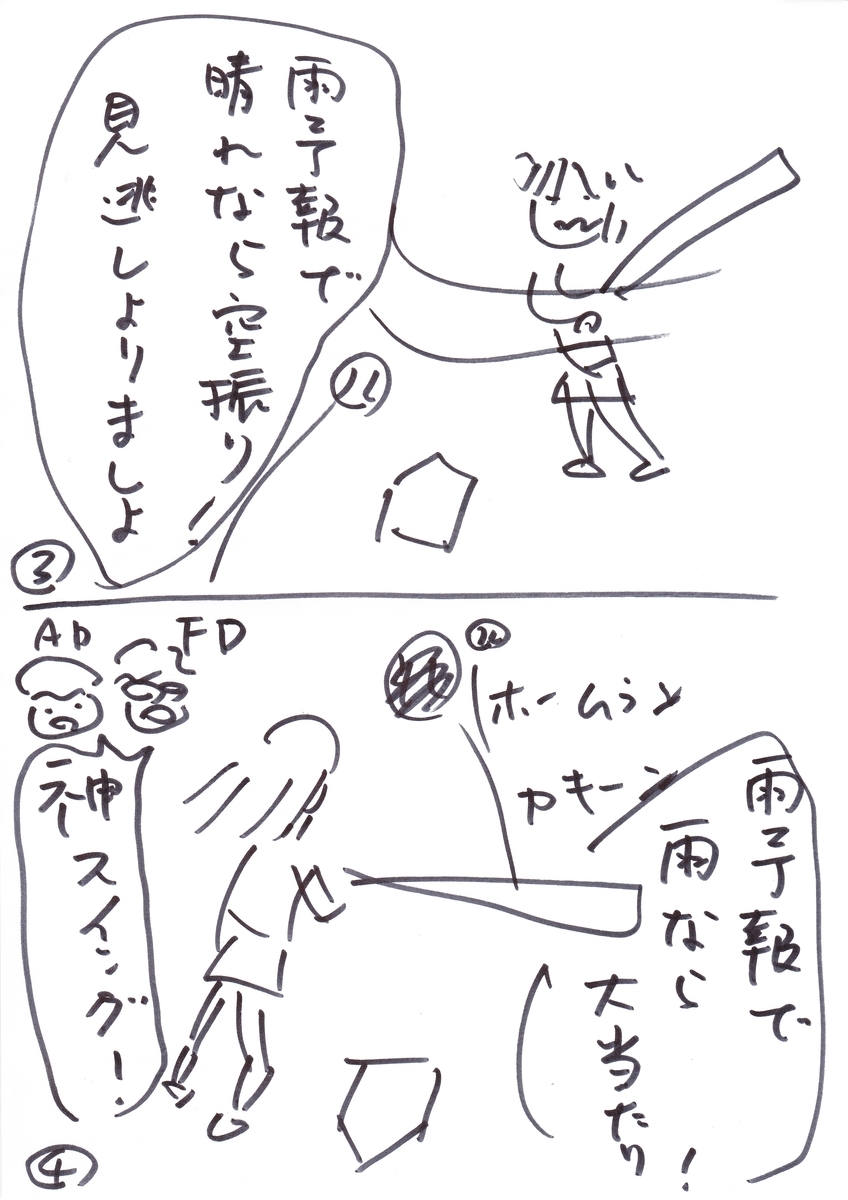 雨予報で
晴れなら空振り!
見逃しよりましよ
③
AD
FD
ホームラン
カキーン
雨予報で
雨なら
大当たり!
神スイング!
④